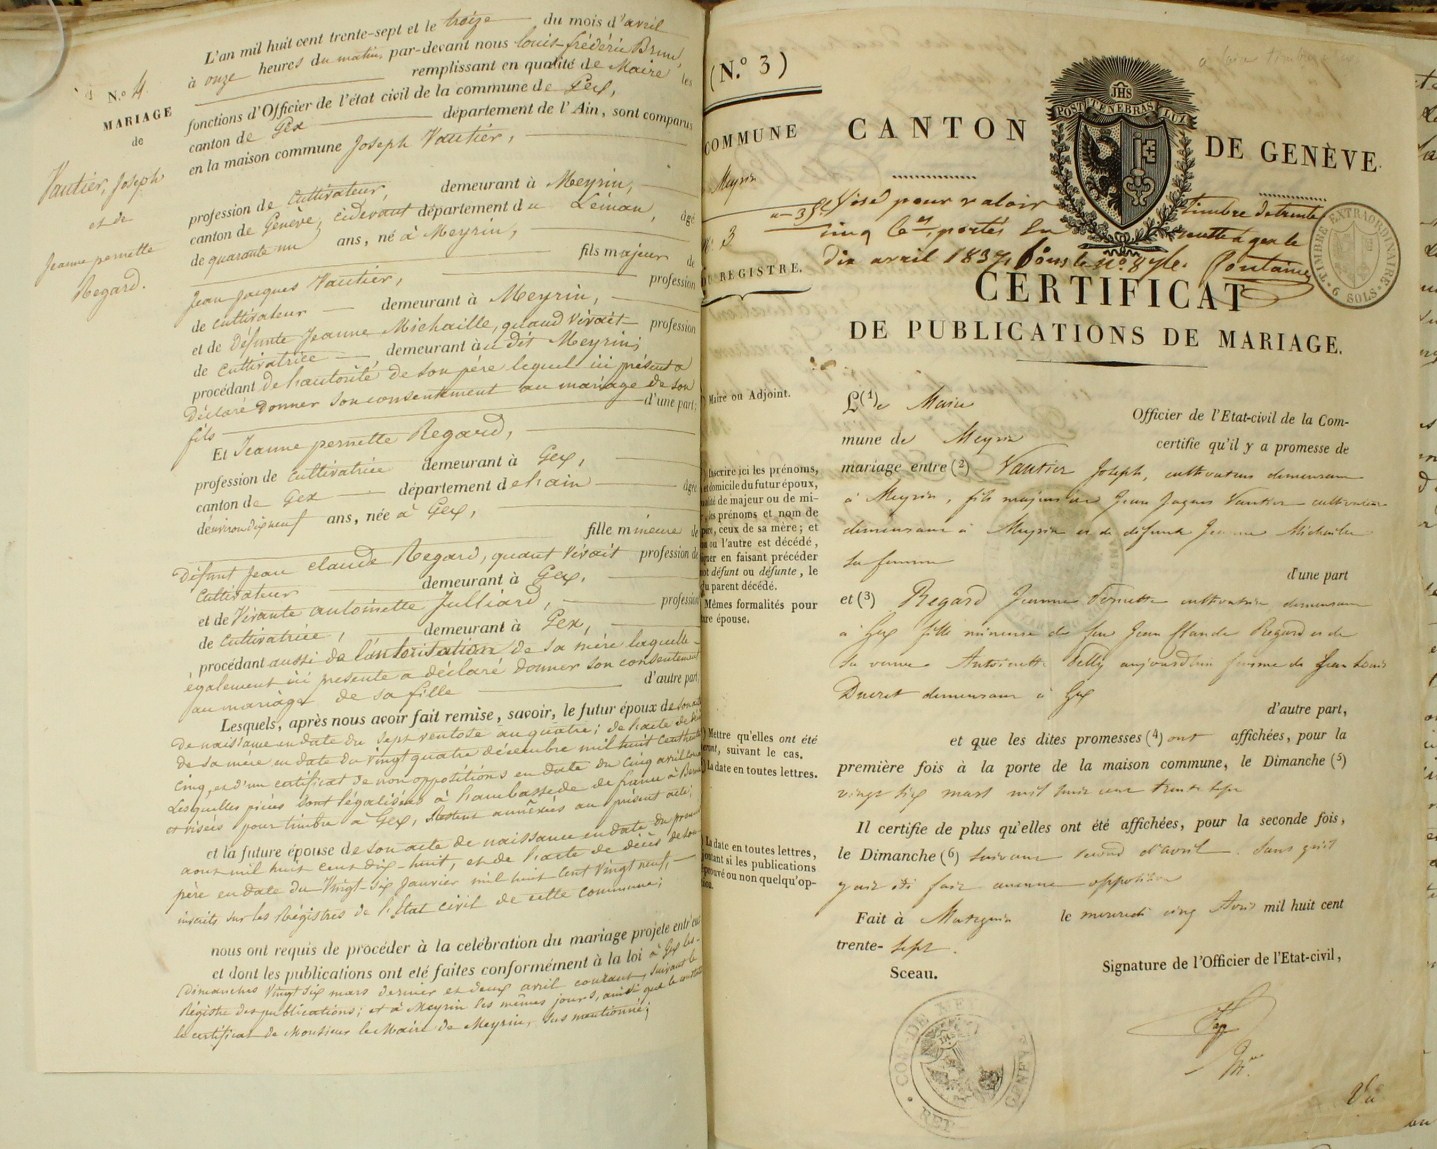 N.º 4
MARIAGE
de
Vautier, Joseph
et de
Jeanne pernette
Regard.
L'an mil huit cent trente-sept et le treize du mois d'avril
à onze heures du matin, par-devant nous Louis frédéric Brun,
remplissant en qualité de Maire les
fonctions d'Officier de l'état civil de la commune de Gex,
canton de Gex département de l'Ain, sont comparus
en la maison commune Joseph Vautier,
profession de Cultivateur, demeurant à Meyrin,
canton de Genève, cidevant département du Léman, âgé
de quarante un ans, né à Meyrin,
fils majeur de
Jean Jacques Vautier, profession
de Cultivateur demeurant à Meyrin,
et de défunte Jeanne Michaille, quand vivait profession
de Cultivatrice demeurant au dit Meyrin;
procédant de l'autorité de son père lequel ici présent a
déclaré donner son consentement au mariage de son
fils d'une part;
Et Jeanne pernette Regard,
profession de Cultivatrice demeurant à Gex,
canton de Gex département de l'ain âgée
d'environ dix neuf ans, née à Gex,
fille mineure de
défunt Jean claude Regard, quand vivait profession de
Cultivateur demeurant à Gex,
et de Vivante antoinette Julliard, profession
de Cultivatrice, demeurant à Gex,
procédant aussi de l'autorisation de sa mère laquelle
également ici présente a déclaré donner son consentement
au mariage de sa fille d'autre part,
Lesquels, après nous avoir fait remise, savoir, le futur époux de son acte
de naissance en date du sept ventose an quatre; de l'acte de décès
de sa mère en date du vingt quatre décembre mil huit cent trente
cinq, et d'un certificat de non oppositions en date du cinq avril
Lesquelles pièces sont légalisées à l'ambassade de france à Berne
et visées pour timbre à Gex, restent annéxées au présent acte;
et la future épouse de son acte de naissance en date du premier
aout mil huit cent dix-huit, et de l'acte de décès de son
père en date du Vingt-six Janvier mil huit cent vingt neuf,
inscrits sur les Régistres de l'Etat civil de cette commune;
nous ont requis de procéder à la celébration du mariage projeté entr'eux
et dont les publications ont été faites conformément à la loi à Gex les
Dimanches Vingt six mars dernier et deux avril courant, suivant le
Régistre des publications; et à Meyrin les mêmes jours, ainsi que le constate
le certificat de Monsieur le Maire de Meyrin, sus mentionné;
(N.º 3)
COMMUNE
Meyrin
N.º 3
REGISTRE.
CANTON DE GENÈVE.
POST TENEBRAS LUX
JHS
Visé pour valoir timbre de trente
cinq ces, portés en recette à gex le
dix avril 1837, sous le no. 87
TIMBRE EXTRAORDINAIRE
9 SOLS
CERTIFICAT
DE PUBLICATIONS DE MARIAGE.
Maire ou Adjoint.
Inscrire ici les prénoms,
domicile du futur époux,
de majeur ou de mi-
prénoms et nom de
père, ceux de sa mère; et
ou l'autre est décédé,
en faisant précéder
mot défunt ou défunte, le
du parent décédé.
Mêmes formalités pour
épouse.
Mettre qu'elles ont été
suivant le cas.
La date en toutes lettres.
La date en toutes lettres,
si les publications
ou non quelqu'op-
L(1)e Maire Officier de l'Etat-civil de la Com-
mune de Meyrin certifie qu'il y a promesse de
mariage entre (2) Vautier Joseph, cultivateur demeurant
à Meyrin, fils majeur de Jean Jaques Vautier cultivateur
demeurant à Meyrin et de défunte Jeanne Michaille
sa femme
d'une part
et (3) Regard Jeanne Pernette cultivatrice demeurant
à Gex fille mineure de feu Jean Claude Regard et de
sa veuve Antoinette aujourd'hui femme de Jean Louis
Ducret demeurant à Gex
d'autre part,
et que les dites promesses (4) ont affichées, pour la
première fois à la porte de la maison commune, le Dimanche (5)
vingt six mars mil huit cent trente sept
Il certifie de plus qu'elles ont été affichées, pour la seconde fois,
le Dimanche (6) suivant second d'avril. Sans qu'il
y ait été fait aucune opposition
Fait à Mategnin le mercredi cinq Avril mil huit cent
trente-sept.
Sceau.
Signature de l'Officier de l'Etat-civil,